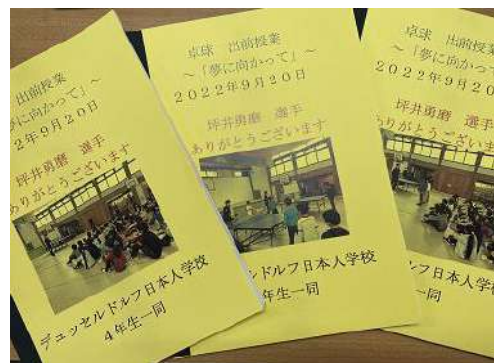 出前授業
夢に向かって」～
22年9月20日
坪井勇磨 選手
ありがとうございます
デュッセルドルフ日本人学校
4年生一同
卓球 出前授業
～「夢に向かって」～
2022年9月20日
坪井勇磨 選手
ありがとうございます
ドルフ日本人学校
年生一同
卓球 出前授業
～「夢に向かっ
2022年9月20
坪井勇磨 選手
ありがとうございま
フ日本人学校
一同